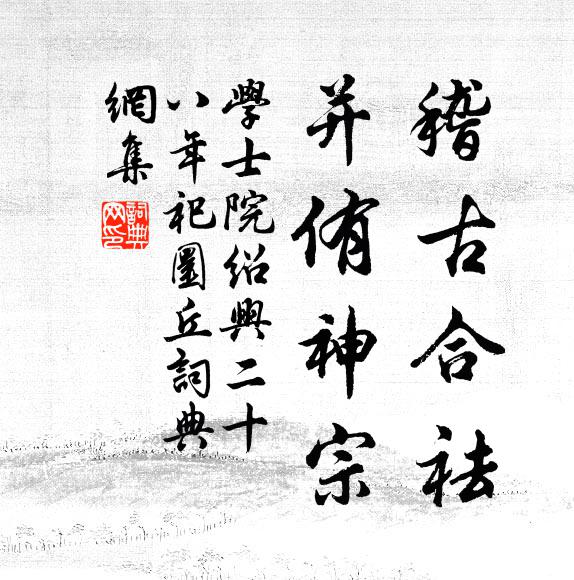 稽古合祛
并侑神宗
學士院紹興二十
八年祀圜丘詞典
網集
詞典
网印